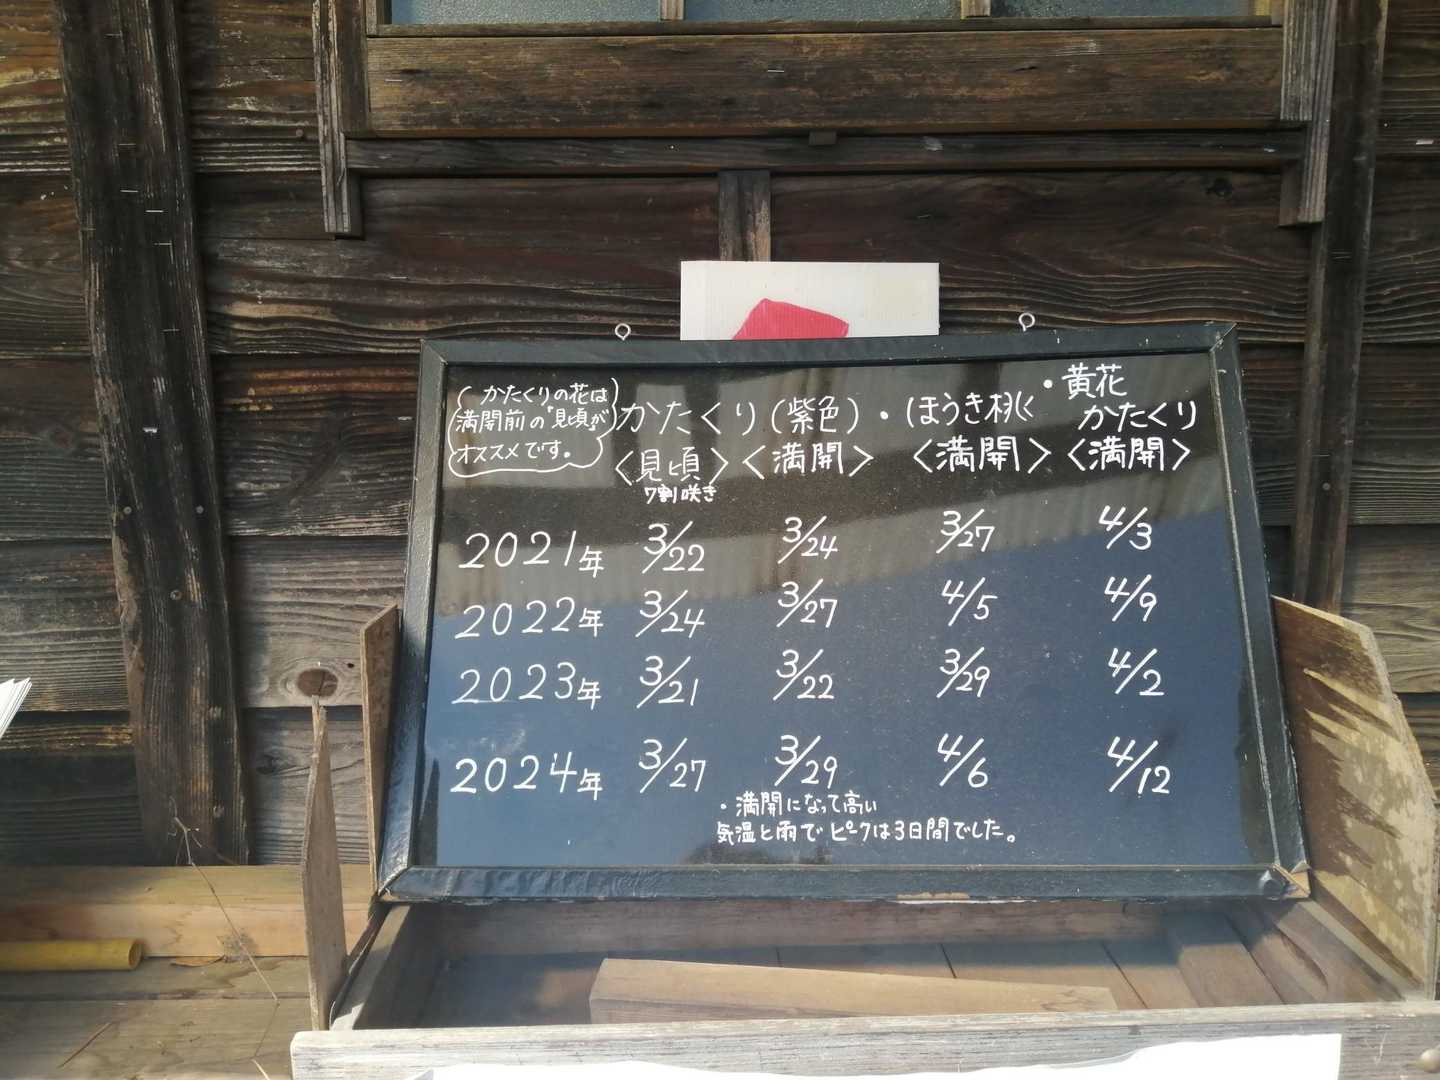 かたくりの花は
満開前の「見頃」が
オススメです。
かたくり(紫色)・ほうき桃
・黄花
かたくり
〈見頃〉〈満開〉〈満開〉〈満開〉
7割咲き
2021年 3/22 3/24 3/27 4/3
2022年 3/24 3/27 4/5 4/9
2023年 3/21 3/22 3/29 4/2
2024年 3/27 3/29 4/6 4/12
・満開になって高い
気温と雨でピークは3日間でした。